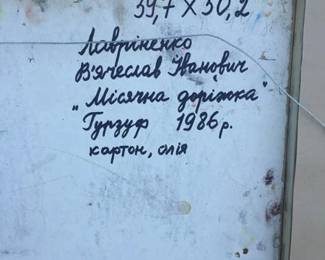 39,7 x 50,2
Лавріненко
В'ячеслав Іванович
„Місячна доріжка"
Гурзуф 1986 р.
картон, олія